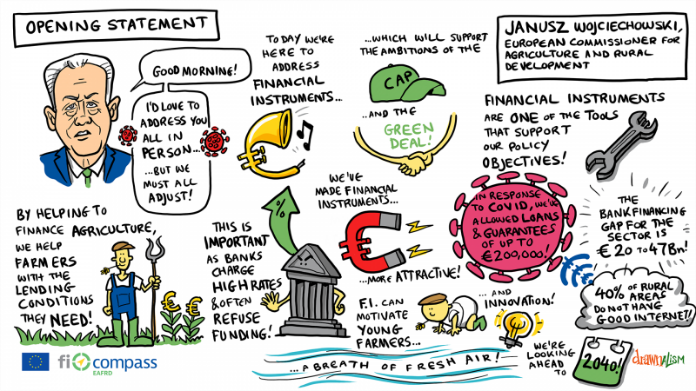 OPENING STATEMENT
GOOD MORNING!
I'D LOVE TO
ADDRESS YOU
ALL IN
PERSON...
...BUT WE
MUST ALL
ADJUST!
TODAY WE'RE
HERE TO
ADDRESS
FINANCIAL
INSTRUMENTS...
...WHICH WILL SUPPORT
THE AMBITIONS OF THE
CAP
...AND THE
GREEN
DEAL!
JANUSZ WOJCIECHOWSKI,
EUROPEAN COMMISSIONER FOR
AGRICULTURE AND RURAL
DEVELOPMENT
FINANCIAL INSTRUMENTS
ARE ONE OF THE TOOLS
THAT SUPPORT
OUR POLICY
OBJECTIVES!
BY HELPING TO
FINANCE AGRICULTURE,
WE HELP
FARMERS
WITH THE
LENDING
CONDITIONS
THEY NEED!
€ €
%
THIS IS
IMPORTANT
AS BANKS
CHARGE
HIGH RATES
& OFTEN
REFUSE
FUNDING!
WE'VE
MADE FINANCIAL
INSTRUMENTS...
€
...MORE ATTRACTIVE!
IN RESPONSE
TO COVID, WE'VE
ALLOWED LOANS
& GUARANTEES
OF UP TO
€200,000!
THE
BANK FINANCING
GAP FOR THE
SECTOR IS
€20 TO 47BN!
F.I. CAN
MOTIVATE
YOUNG
FARMERS...
...AND
INNOVATION!
40% OF RURAL
AREAS
DO NOT HAVE
GOOD INTERNET!
...A BREATH OF FRESH AIR!
WE'RE
LOOKING
AHEAD TO
2040!
fi compass
EAFRD
drawnalism